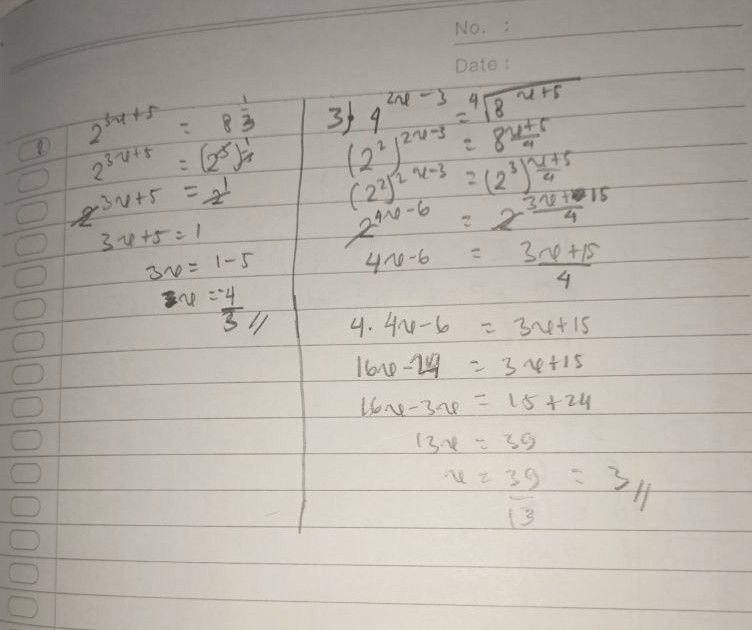 No. :
Date :
2^{3x+5} = 8^{\frac{1}{3}}
2^{3x+5} = (2^3)^{\frac{1}{3}}
2^{3x+5} = 2^1
3x+5 = 1
3x = 1-5
x = \frac{-4}{3} //
3) 4^{2x-3} = \sqrt[4]{8^{x+5}}
(2^2)^{2x-3} = 8^{\frac{x+5}{4}}
(2^2)^{2x-3} = (2^3)^{\frac{x+5}{4}}
2^{4x-6} = 2^{\frac{3x+15}{4}}
4x-6 = \frac{3x+15}{4}
4. 4x-6 = 3x+15
16x-24 = 3x+15
16x-3x = 15+24
13x = 39
x = \frac{39}{13} = 3 //